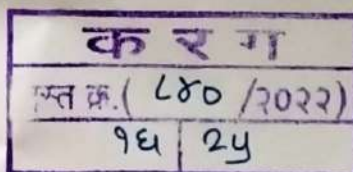 करग
दस्त क्र.( ८४० /२०२२)
१६ २५